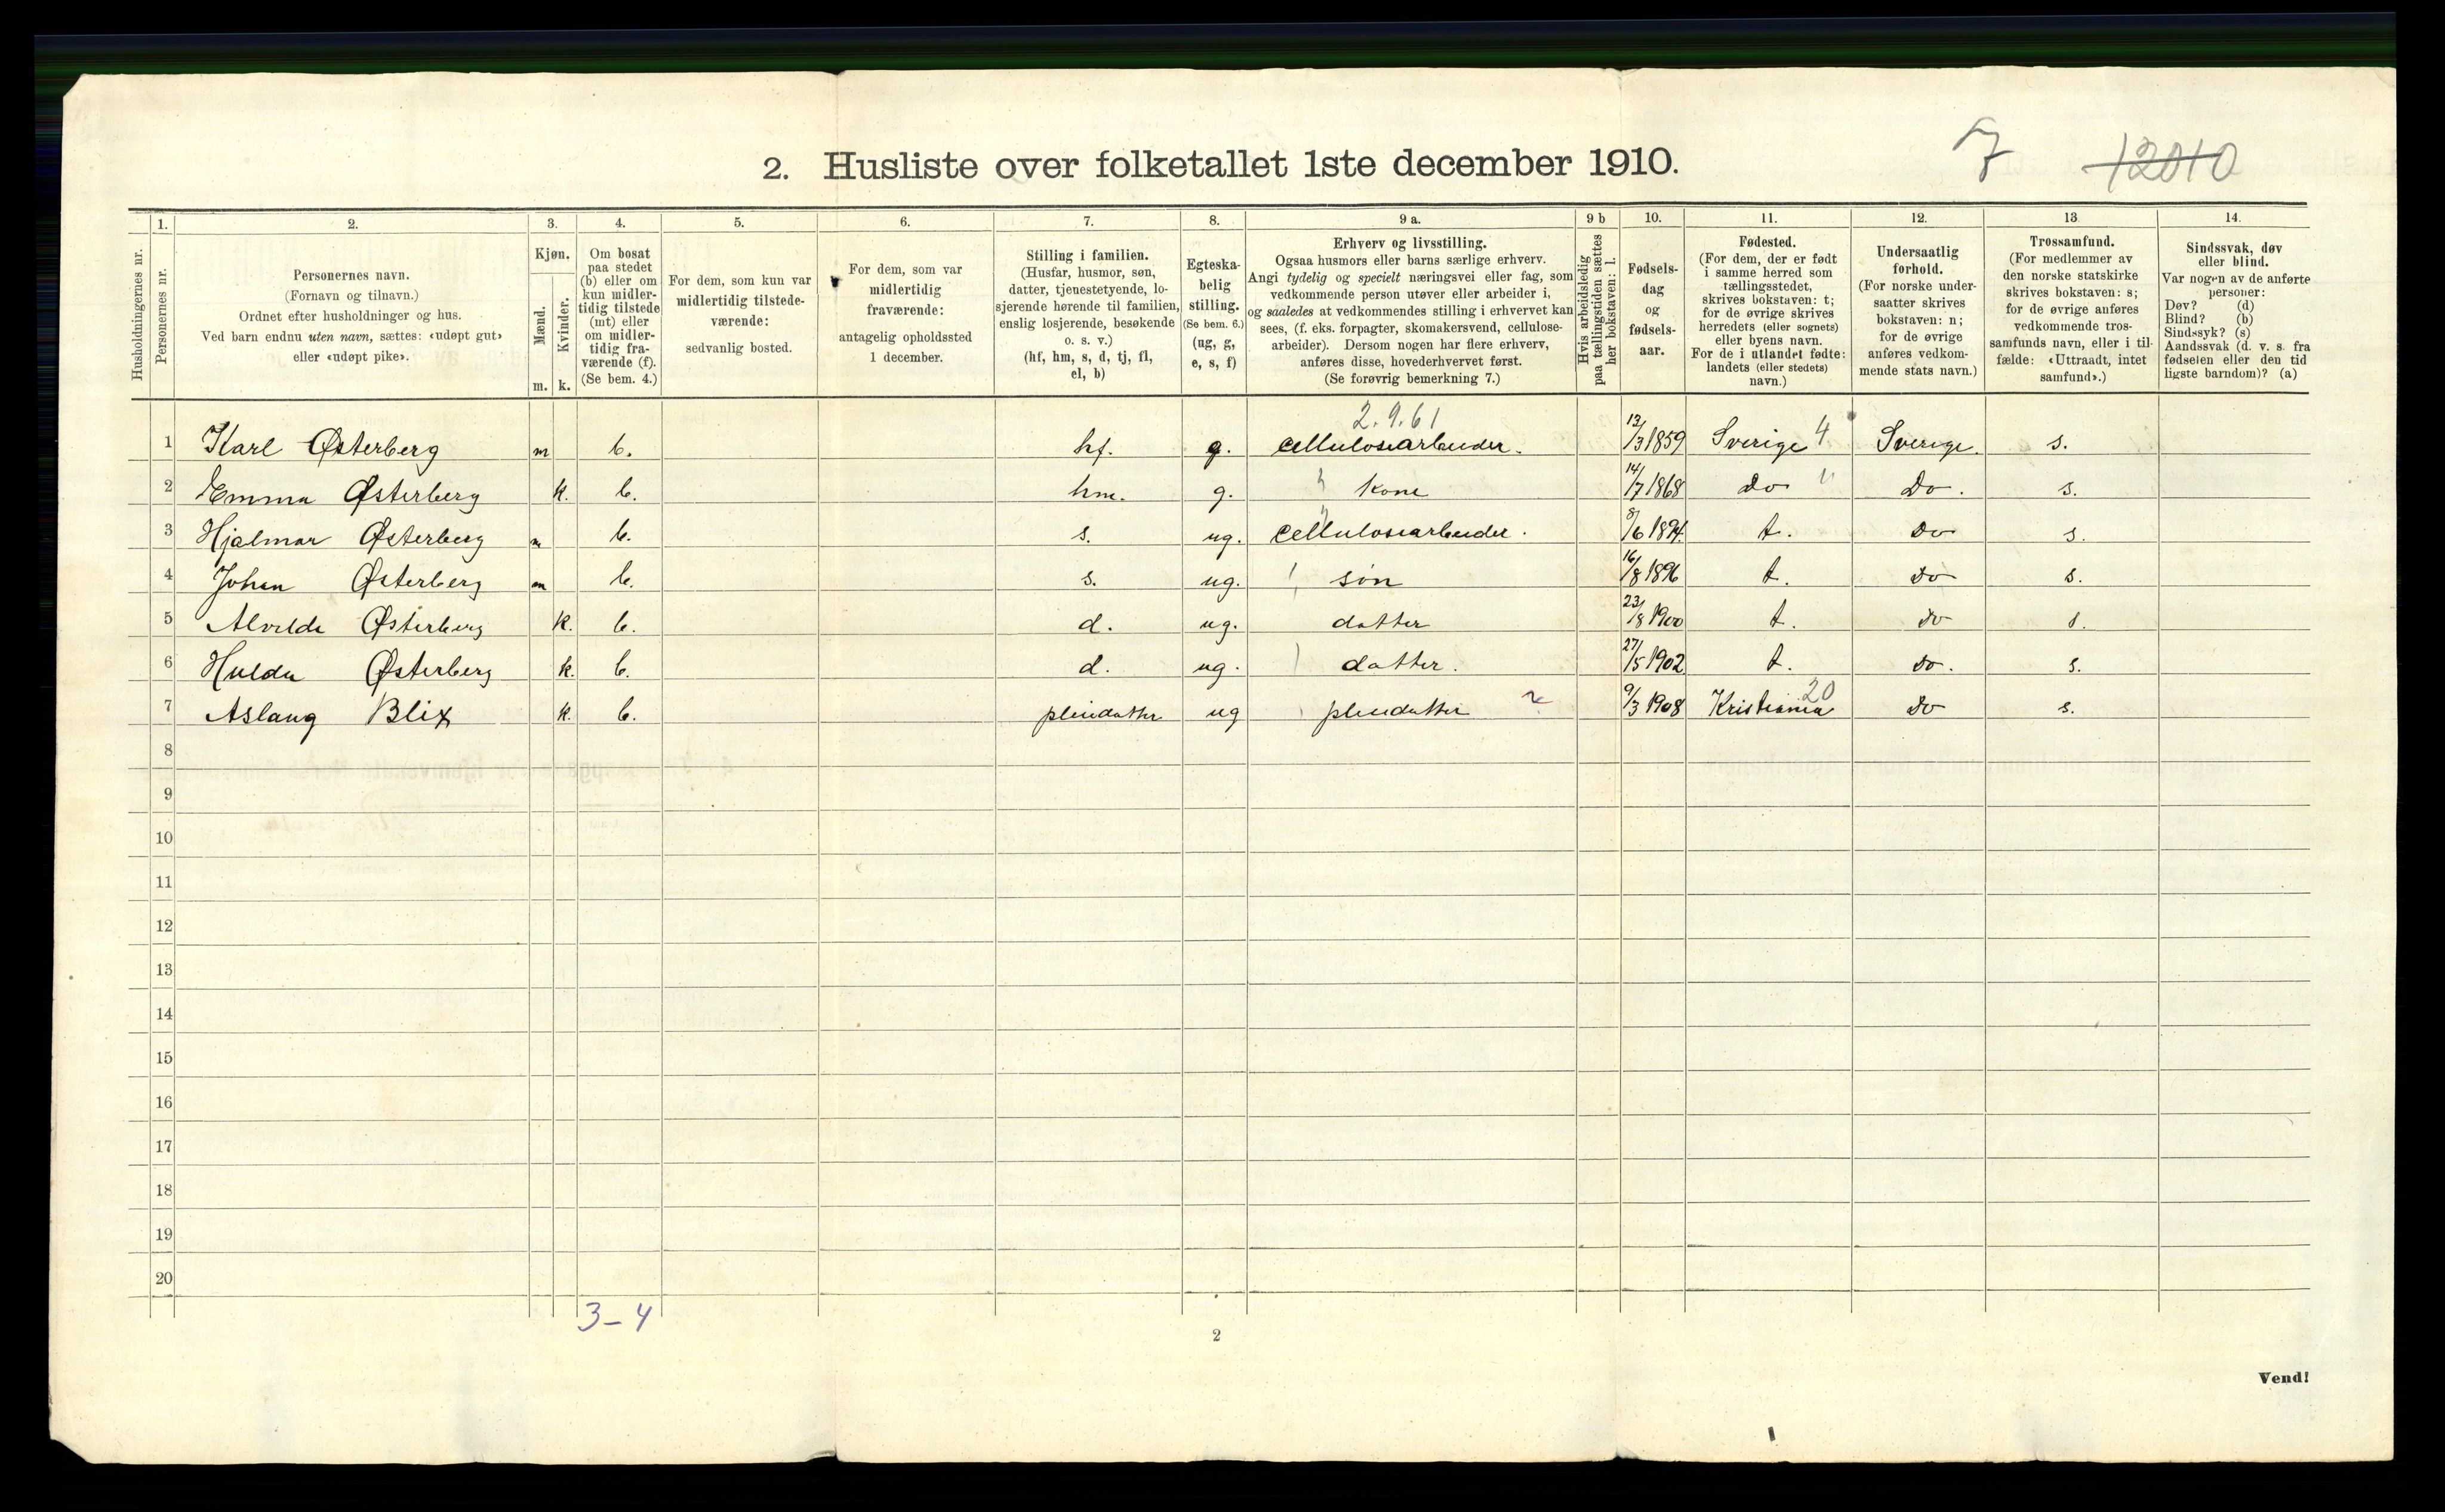 7 12010
2. Husliste over folketallet 1ste december 1910.
Husholdningernes nr.
1.
Personernes nr.
2.
Personernes navn.
(Fornavn og tilnavn.)
Ordnet efter husholdninger og hus.
Ved barn endnu uten navn, sættes: «udøpt gut»
eller «udøpt pike».
3.
Kjøn.
Mænd.
Kvinder.
m. k.
4.
Om bosat
paa stedet
(b) eller om
kun midler-
tidig tilstede
(mt) eller
om midler-
tidig fra-
værende (f).
(Se bem. 4.)
5.
For dem, som kun var
midlertidig tilstede-
værende:
sedvanlig bosted.
6.
For dem, som var
midlertidig
fraværende:
antagelig opholdssted
1 december.
7.
Stilling i familien.
(Husfar, husmor, søn,
datter, tjenestetyende, lo-
sjerende hørende til familien,
enslig losjerende, besøkende
o. s. v.)
(hf, hm, s, d, tj, fl,
el, b)
8.
Egteska-
belig
stilling.
(Se bem. 6.)
(ug, g,
e, s, f)
9 a.
Erhverv og livsstilling.
Ogsaa husmors eller barns særlige erhverv.
Angi tydelig og specielt næringsvei eller fag, som
vedkommende person utøver eller arbeider i,
og saaledes at vedkommendes stilling i erhvervet kan
sees, (f. eks. forpagter, skomakersvend, cellulose-
arbeider). Dersom nogen har flere erhverv,
anføres disse, hovederhvervet først.
(Se forøvrig bemerkning 7.)
9 b
Hvis arbeidsledig
paa tællingstiden sættes
her bokstaven: l.
10.
Fødsels-
dag
og
fødsels-
aar.
11.
Fødested.
(For dem, der er født
i samme herred som
tællingsstedet,
skrives bokstaven: t;
for de øvrige skrives
herredets (eller sognets)
eller byens navn.
For de i utlandet fødte:
landets (eller stedets)
navn.)
12.
Undersaatlig
forhold.
(For norske under-
saatter skrives
bokstaven: n;
for de øvrige
anføres vedkom-
mende stats navn.)
13
Trossamfund.
(For medlemmer av
den norske statskirke
skrives bokstaven: s;
for de øvrige anføres
vedkommende tros-
samfunds navn, eller i til-
fælde: «Uttraadt, intet
samfund».)
14.
Sindssvak, døv
eller blind.
Var nogen av de anførte
personer:
Døv? (d)
Blind? (b)
Sindssyk? (s)
Aandssvak (d. v. s. fra
fødselen eller den tid
ligste barndom)? (a)
2.9.61
1 Karl Østerberg m b. hf. g. Cellulosearbeider. 13/3 1859 Sverige 4 Sverige. s.
2 Emma Østerberg k. b. hm. g. Kone 14/7 1868 do " Do. s.
3 Hjalmar Østerberg m b. s. ug. Cellulosearbeider. 8/6 1894. t. do s.
4 Johan Østerberg m b. s. ug. søn 16/8 1896 t. do s.
5 Alvilde Østerberg k. b. d. ug. datter 23/8 1900 t. do s.
6 Hulda Østerberg k. b. d. ug. datter. 27/5 1902 t. do. s.
7 Aslaug Blix k. b. pleiedatter ug pleiedatter 9/3 1908 Kristiania 20 do s.
8
9
10
11
12
13
14
15
16
17
18
19
20
3-4
2
Vend!